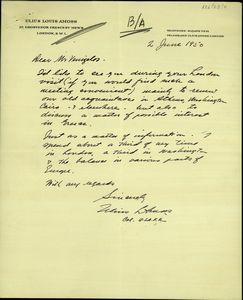 ULIUS LOUIS AMOSS
GROSVENOR CRESCENT MEWS
LONDON, S.W.1.
B/A
2 June 1950
Dear Mr
I'd like to see you during your London
visit (if you would find such a
meeting convenient) mainly to renew
our old acquaintance in Athens, Washington
Cairo & elsewhere but also, to
discuss a matter of possible interest
in Greece.
Just as a matter of information - I
spend about a third of my time
in London, a third in Washington
& the balance in various parts of
Europe.
With my regards
Sincerely
Ulius L Amoss
Col. USAFR